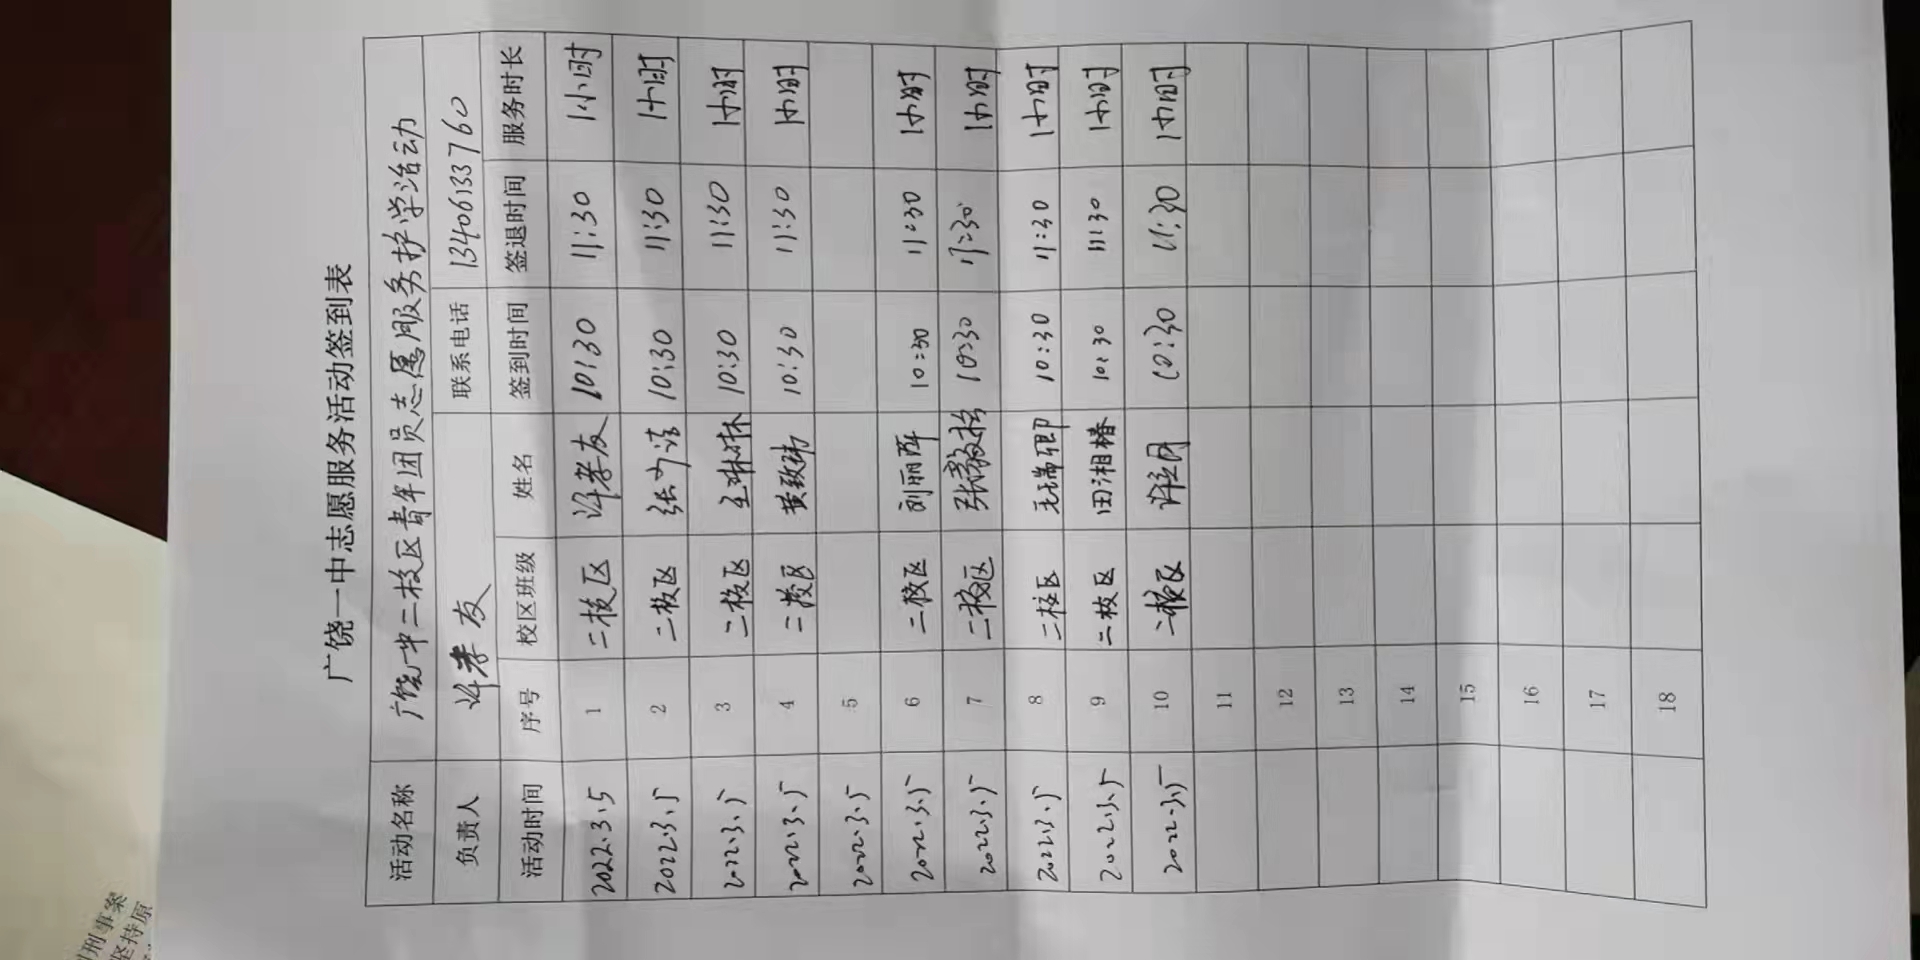 广饶一中志愿服务活动签到表
活动名称 广饶一中二校区青年团员志愿服务护学活动
负责人 许孝友 联系电话 13406133760
活动时间 序号 校区班级 姓名 签到时间 签退时间 服务时长
2022.3.5 1 二校区 许孝友 10:30 11:30 1小时
2022.3.5 2 二校区 10:30 11:30 1小时
2022.3.5 3 二校区 10:30 11:30 1小时
2022.3.5 4 二校区 黄致玮 10:30 11:30 1小时
2022.3.5 5
2022.3.5 6 二校区 刘丽萍 10:30 11:30 1小时
2022.3.5 7 二校区 10:30 11:30 1小时
2022.3.5 8 二校区 10:30 11:30 1小时
2022.3.5 9 二校区 田湘椿 10:30 11:30 1小时
2022.3.5 10 二校区 10:30 11:30 1小时
11
12
13
14
15
16
17
18
刑事案
坚持原